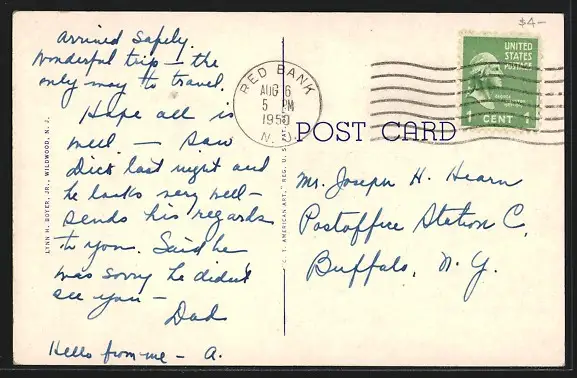 $4-
Arrived safely.
Wonderful trip - the
only way to travel.
Hope all is
well - saw
Dick last night and
he looks very well -
sends his regards
to you. Said he
was sorry he didn't
see you -
Dad
Hello from me - A.
LYNN H. BOYER, JR., WILDWOOD, N. J.
"C. T. AMERICAN ART," REG. U. S.
RED BANK
AUG 6
5 PM
1950
N. J.
UNITED
STATES
POSTAGE
1 CENT 1
POST CARD
Mr. Joseph H. Hearn
Postoffice Station C,
Buffalo, N. Y.